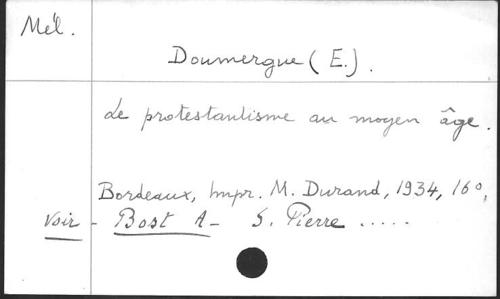 Mél.
Doumergue (E.).
Le protestantisme au moyen âge.
Bordeaux, Impr. M. Durand, 1934, 16°,
Voir - Bost A- S. Pierre .....